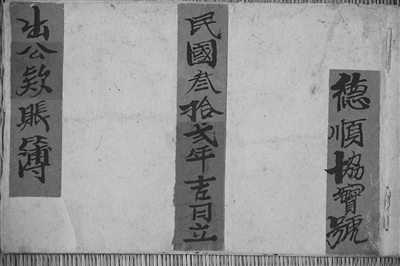 德順協寶號
民國叁拾弍年吉月立
出公欵賬簿